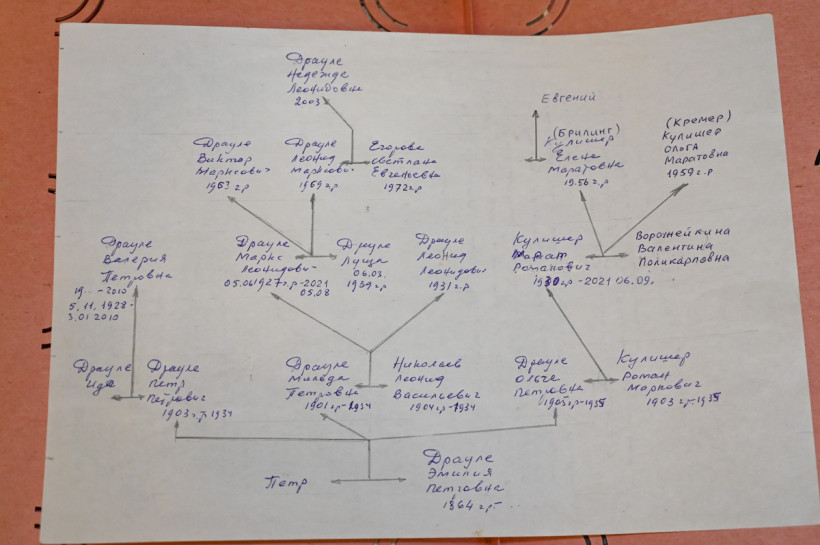 Драуле
Надежда
Леонидовна
2003
Евгений
(Брилинг)
Кулишер
Елена
Маратовна
1956 г.р
(Кремер)
Кулишер
Ольга
Маратовна
1959 г.р
Драуле
Виктор
Марксович
1963 г.р
Драуле
Леонид
Марксович
1969 г.р
Егорова
Светлана
Евгеньевна
1972 г.р
Драуле
Валерия
Петровна
19 - -2010
5.11.1928-
3.01 2010
Драуле
Маркс
Леонидович
05.06 1927 г.р -2021
05.08
Драуле
06.03.
1939 г.р
Драуле
Леонид
Леонидович
1931 г.р
Кулишер
Марат
Романович
1930 г.р - 2021 06.09.
Ворожейкина
Валентина
Поликарповна
Драуле
Ида
Драуле
Петр
Петрович
1903 г.р-1934
Драуле
Мильда
Петровна
1901 г.р-1934
Николаев
Леонид
Васильевич
1904 г.р-1934
Драуле
Ольга
Петровна
1905 г.р-1935
Кулишер
Роман
Маркович
1903 г.р-1935
Петр
Драуле
Эмилия
Петровна
1864 г.р-